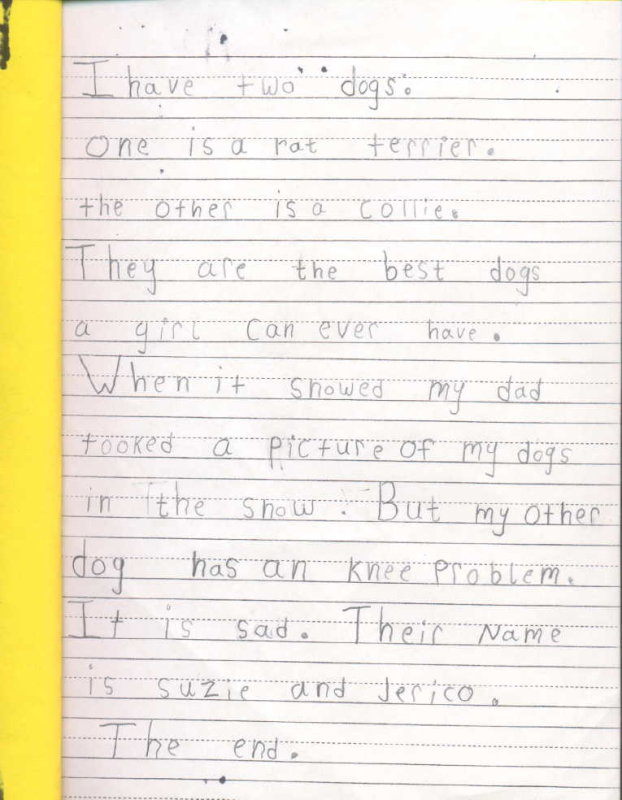 I have two dogs.
One is a rat terrier.
the other is a collie.
They are the best dogs
a girl can ever have.
When it showed my dad
tooked a picture of my dogs
in the show. But my other
dog has an knee problem.
It is sad. Their Name
is suzie and Jerico.
The end.